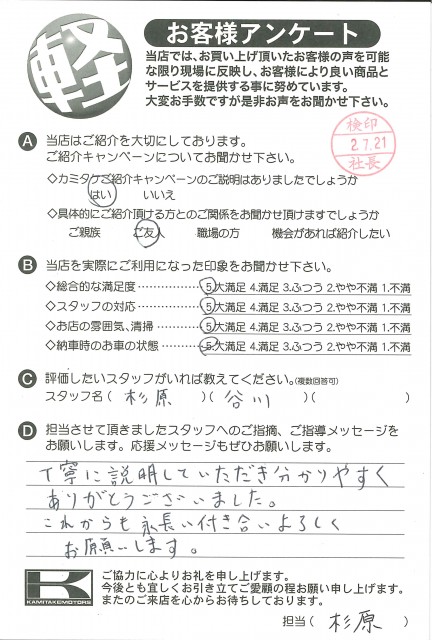 軽
お客様アンケート
当店では、お買い上げ頂いたお客様の声を可能
な限り現場に反映し、お客様により良い商品と
サービスを提供する事に努めています。
大変お手数ですが是非お声をお聞かせ下さい。
検印
2.7.21
社長
A 当店はご紹介を大切にしております。
ご紹介キャンペーンについてお聞かせ下さい。
◇カミタケご紹介キャンペーンのご説明はありましたでしょうか
はい いいえ
◇具体的にご紹介頂ける方とのご関係をお聞かせ頂けますでしょうか
ご親族 ご友人 職場の方 機会があれば紹介したい
B 当店を実際にご利用になった印象をお聞かせ下さい。
◇総合的な満足度……………… 5.大満足 4.満足 3.ふつう 2.やや不満 1.不満
◇スタッフの対応……………… 5.大満足 4.満足 3.ふつう 2.やや不満 1.不満
◇お店の雰囲気、清掃………… 5.大満足 4.満足 3.ふつう 2.やや不満 1.不満
◇納車時のお車の状態………… 5.大満足 4.満足 3.ふつう 2.やや不満 1.不満
C 評価したいスタッフがいれば教えてください。(複数回答可)
スタッフ名( 杉原 )( 谷川 )( )
D 担当させて頂きましたスタッフへのご指摘、ご指導メッセージを
お願いします。応援メッセージもぜひお願いします。
丁寧に説明していただき分かりやすく
ありがとうございました。
これからも末長い付き合いよろしく
お願いします。
K
KAMITAKEMOTORS
ご協力に心よりお礼を申し上げます。
今後とも宜しくお引き立てご愛顧の程お願い申し上げます。
またのご来店を心からお待ちしております。
担当( 杉原 )